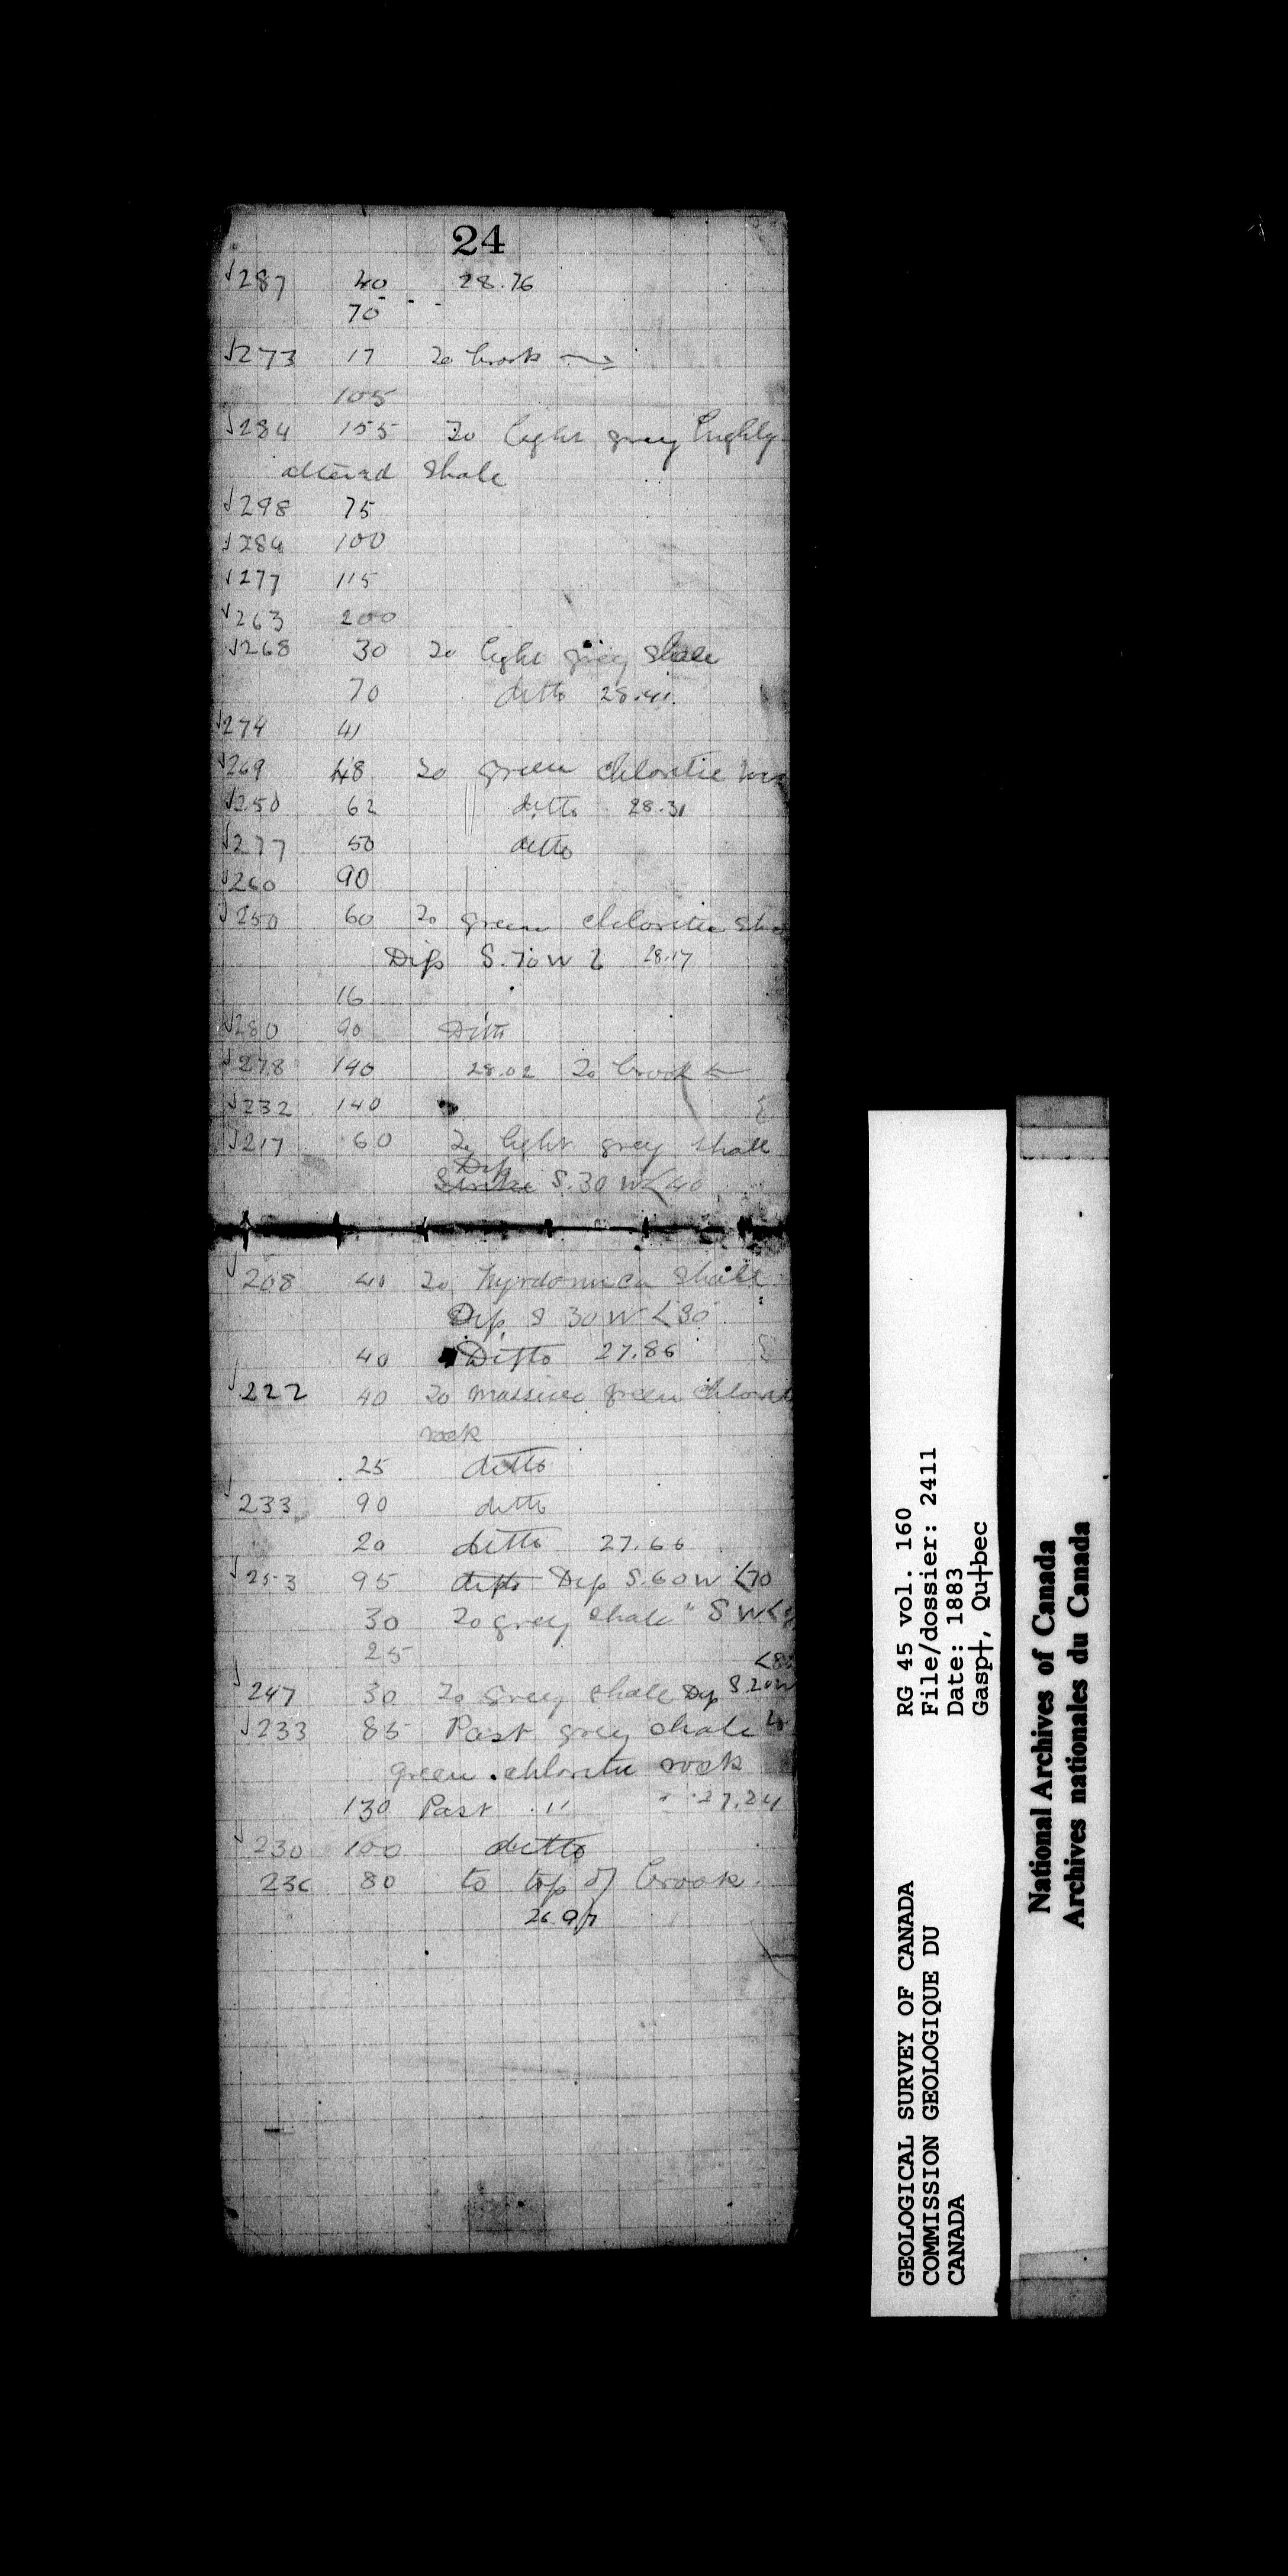 24
√287 40 28.76
70 " "
√273 17 To brook →
105
√284 155 To light grey highly
altered shale
√298 75
√284 100
√277 115
√263 200
√268 30 To light grey shale
70 ditto 28.41
√274 41
√269 48 To green chloritic
√250 62 ditto 28.31
√277 50 ditto
√260 90
√250 60 To green chloritic sha
Dip S.70W 28.17
16
√280 90 Ditto
√278 140 28.02 To brook ←
√232 140
√217 60 To light grey shale
Dip
Strike S.30 W < 40
√208 40 To hyrdomica shale
Dip S 30 W < 80
40 Ditto 27.86
√222 40 To massive green chlorit
rock
25 ditto
√233 90 ditto
20 ditto 27.66
√253 95 ditto Dip S.60W <70
30 To grey shale " S W <
25
<8
√247 30 To Grey shale Dip S.20W
√233 85 Past grey shale to
green chloritic rock
130 Past " " 27.24
√230 100 ditto
236 80 to top of brook.
26.97
GEOLOGICAL SURVEY OF CANADA
COMMISSION GEOLOGIQUE DU
CANADA
RG 45 vol. 160
File/dossier: 2411
Date: 1883
Gasp†, Qu†bec
National Archives of Canada
Archives nationales du Canada